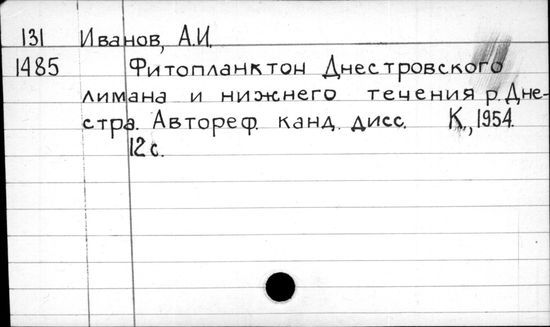 131 Иванов, А.И.
1485 Фитопланктон Днестровского
лимана и нижнего течения р. Дне-
стра. Автореф. канд. дисс. К., 1954.
12 с.